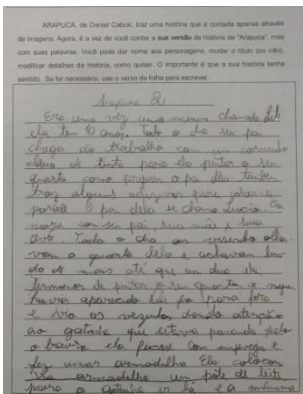 ARAPUCA, de Daniel Cabral, traz uma história que é contada apenas através
de imagens. Agora, é a vez de você contar a sua versão da história de "Arapuca", mas
com suas palavras. Você pode dar nome aos personagens, mudar o título (ou não),
modificar detalhes da história, como quiser. O importante é que a sua história tenha
sentido. Se for necessário, use o verso da folha para escrever.
Arapuca 2
Era uma vez uma menina chamada
ela tem 10 anos. Todo o dia seu pai
chega do trabalho com um
de tinta para ela pintar o seu
quarto como o pai dela também
traz alguns adesivos para colar na
parede O pai dela se chama Lucio. Ela
mora com seu pai, sua mãe e sua
avó. Todo o dia os vizinho olha
vam o quarto dela e achavam lin
do de mais até que um dia ela
de pintar o seu quarto e
havia aparecido foi para fora
e viu os vizinhos dando atenção
ao gatinho que estava passando pelo
ela ficou com inveja e
fez umas armadilha Ela colocou
armadilha um pote de leite
para o gatinho ir lá e a menina